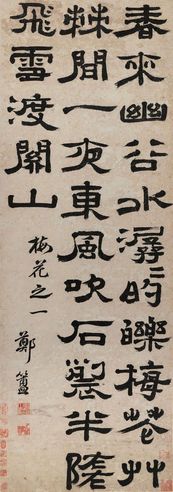 春來幽谷水潺〻的皪梅花艸
棘間一夜東風吹石裂半隨
飛雪渡關山
梅花之一
鄭簠